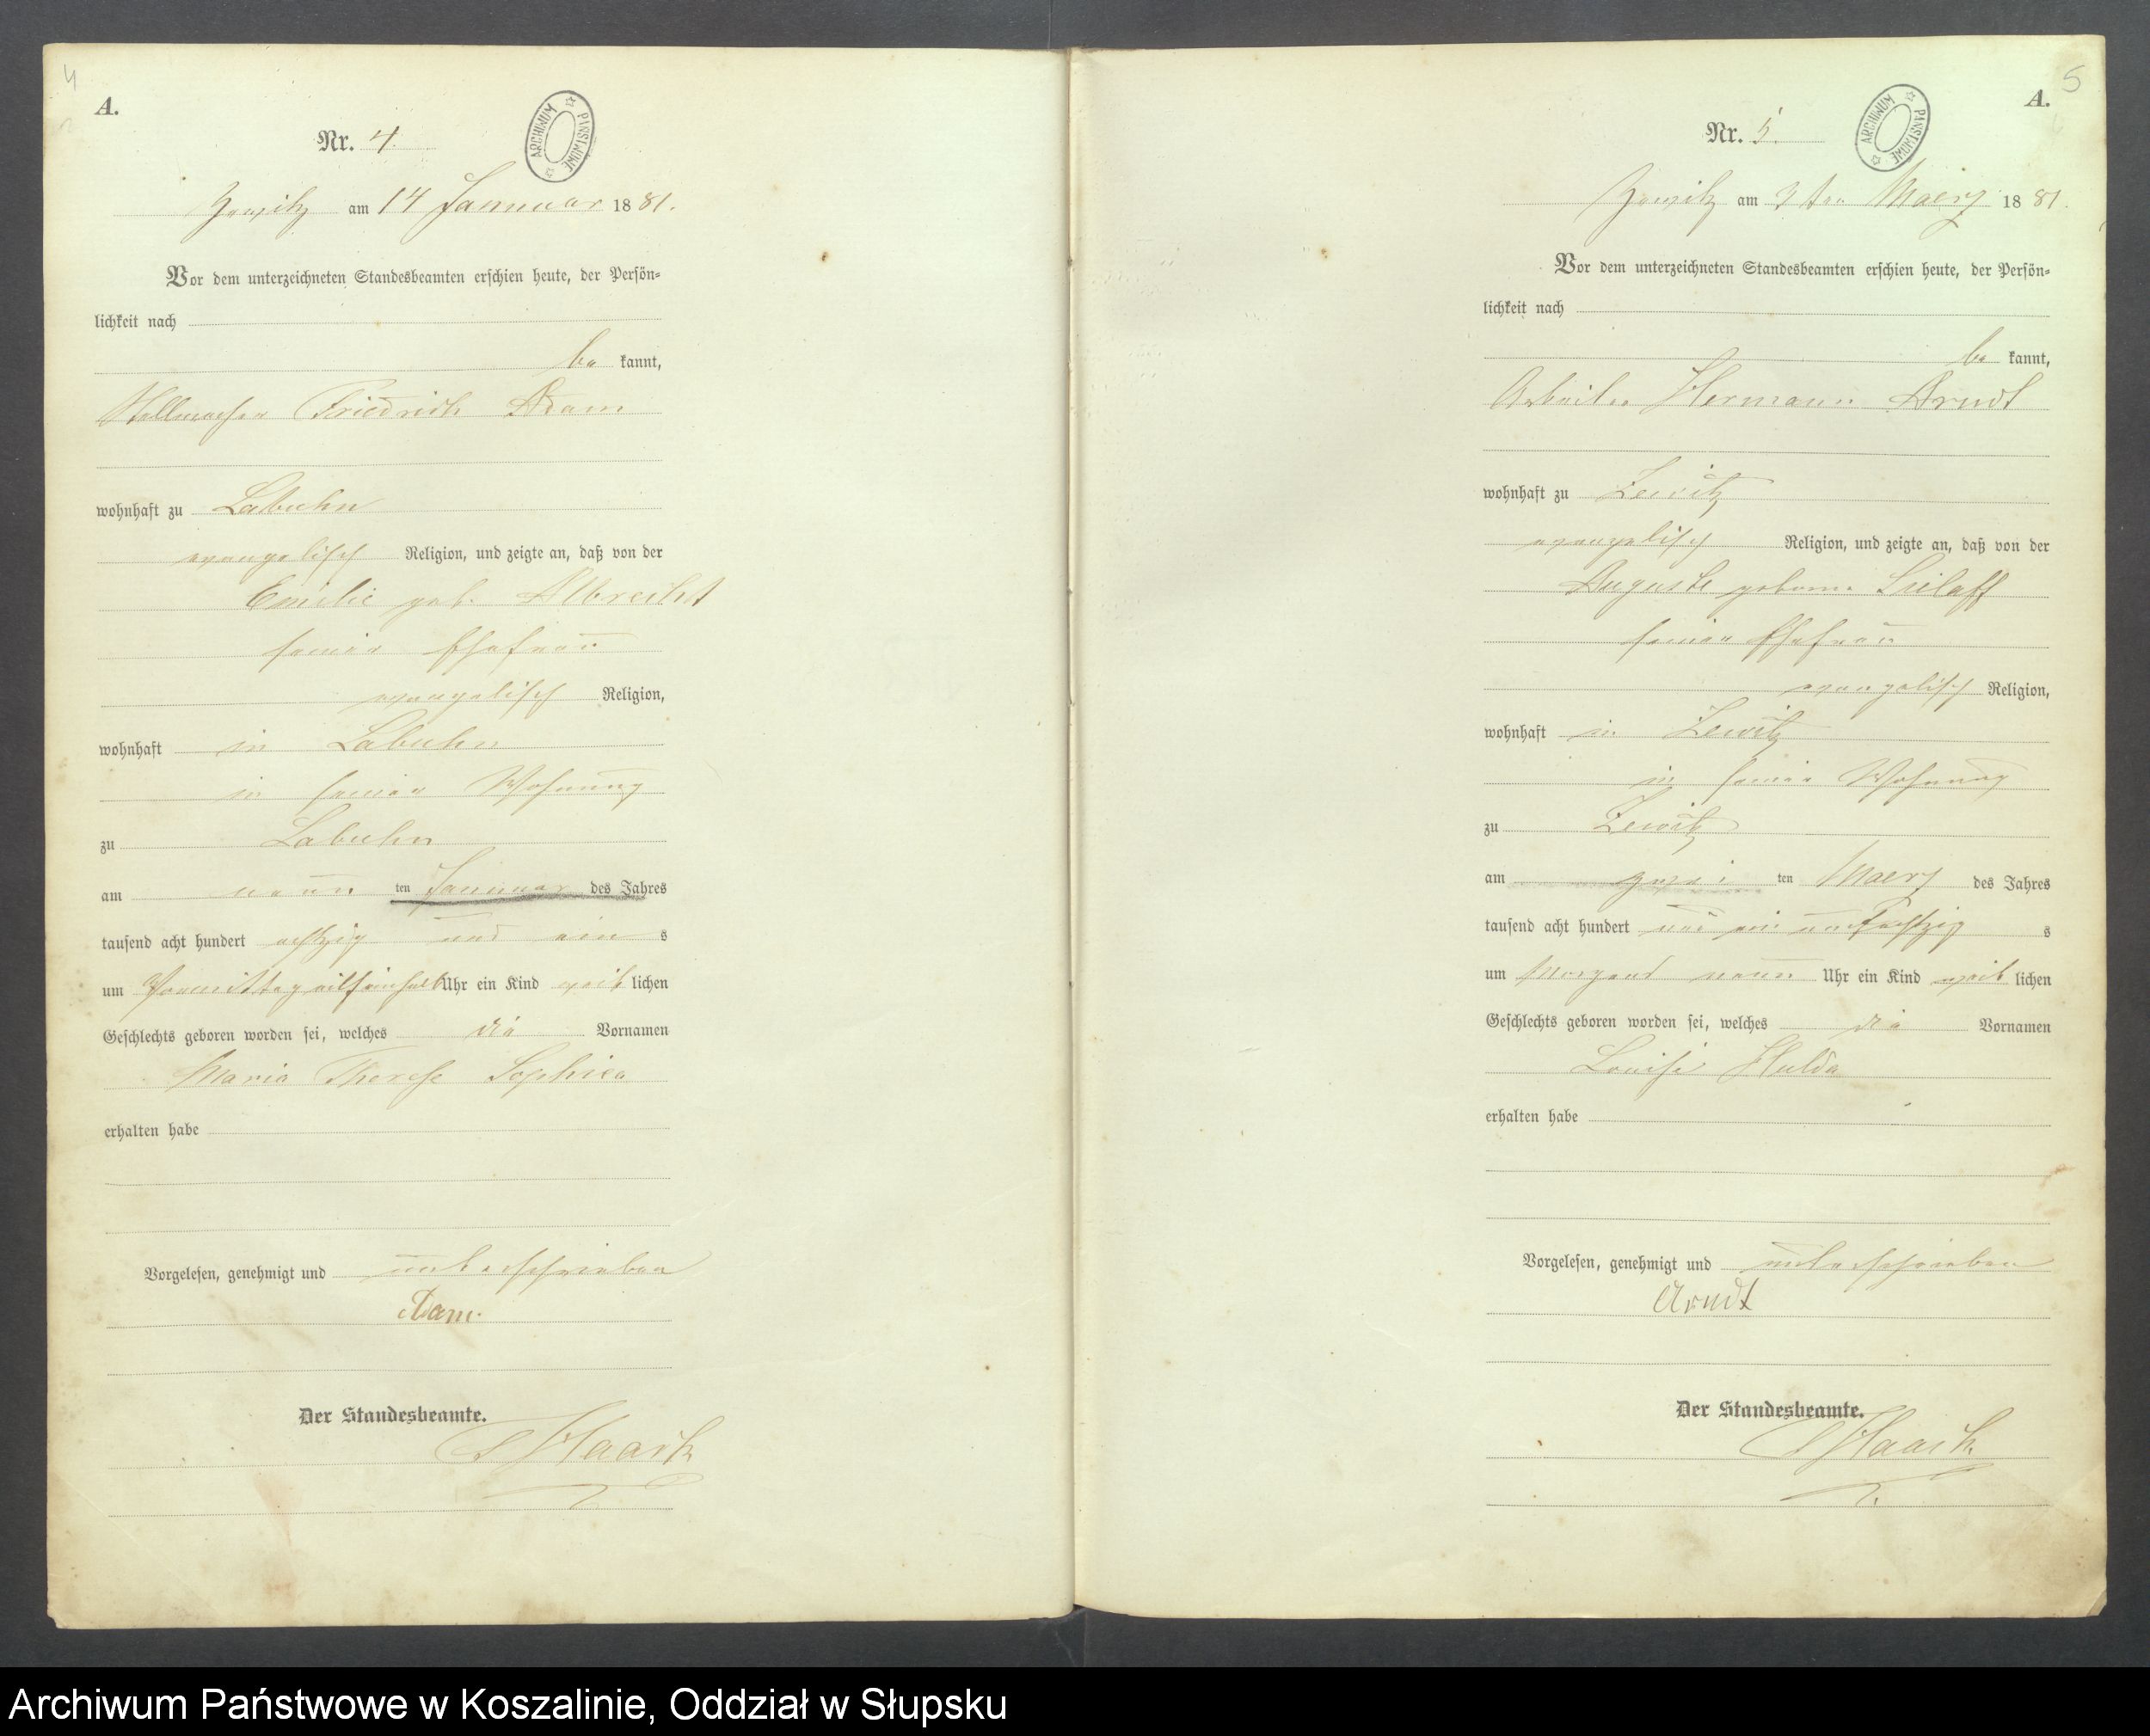 4
A.
Nr. 4.
ARCHIWUM PAŃSTWOWE
Zewitz am 14 Januar 1881.
Vor dem unterzeichneten Standesbeamten erschien heute, der Persön-
lichkeit nach
be kannt,
Stellmacher Friedrich Adam
wohnhaft zu Labuhn
evangelisch Religion, und zeigte an, daß von der
Emilie geb. Albrecht
seiner Ehefrau
evangelisch Religion,
wohnhaft in Labuhn
in seiner Wohnung
zu Labuhn
am neun ten Januar des Jahres
tausend acht hundert achtzig und ein s
um Vormittag Uhr ein Kind weib lichen
Geschlechts geboren worden sei, welches die Vornamen
Maria Therese
erhalten habe
Vorgelesen, genehmigt und unterschrieben
Adam.
Der Standesbeamte.
Haack
5
A.
Nr. 5.
ARCHIWUM PAŃSTWOWE
Zewitz am ten Maerz 1881.
Vor dem unterzeichneten Standesbeamten erschien heute, der Persön-
lichkeit nach
be kannt,
Arbeiter Hermann Arndt
wohnhaft zu Zewitz
evangelisch Religion, und zeigte an, daß von der
Auguste geborne
seiner Ehefrau
evangelisch Religion,
wohnhaft in Zewitz
in seiner Wohnung
zu Zewitz
am zwei ten Maerz des Jahres
tausend acht hundert und ein und achtzig s
um Morgens neun Uhr ein Kind weib lichen
Geschlechts geboren worden sei, welches die Vornamen
Louise Hulda
erhalten habe
Vorgelesen, genehmigt und unterschrieben
Arndt
Der Standesbeamte.
Haack
Archiwum Państwowe w Koszalinie, Oddział w Słupsku